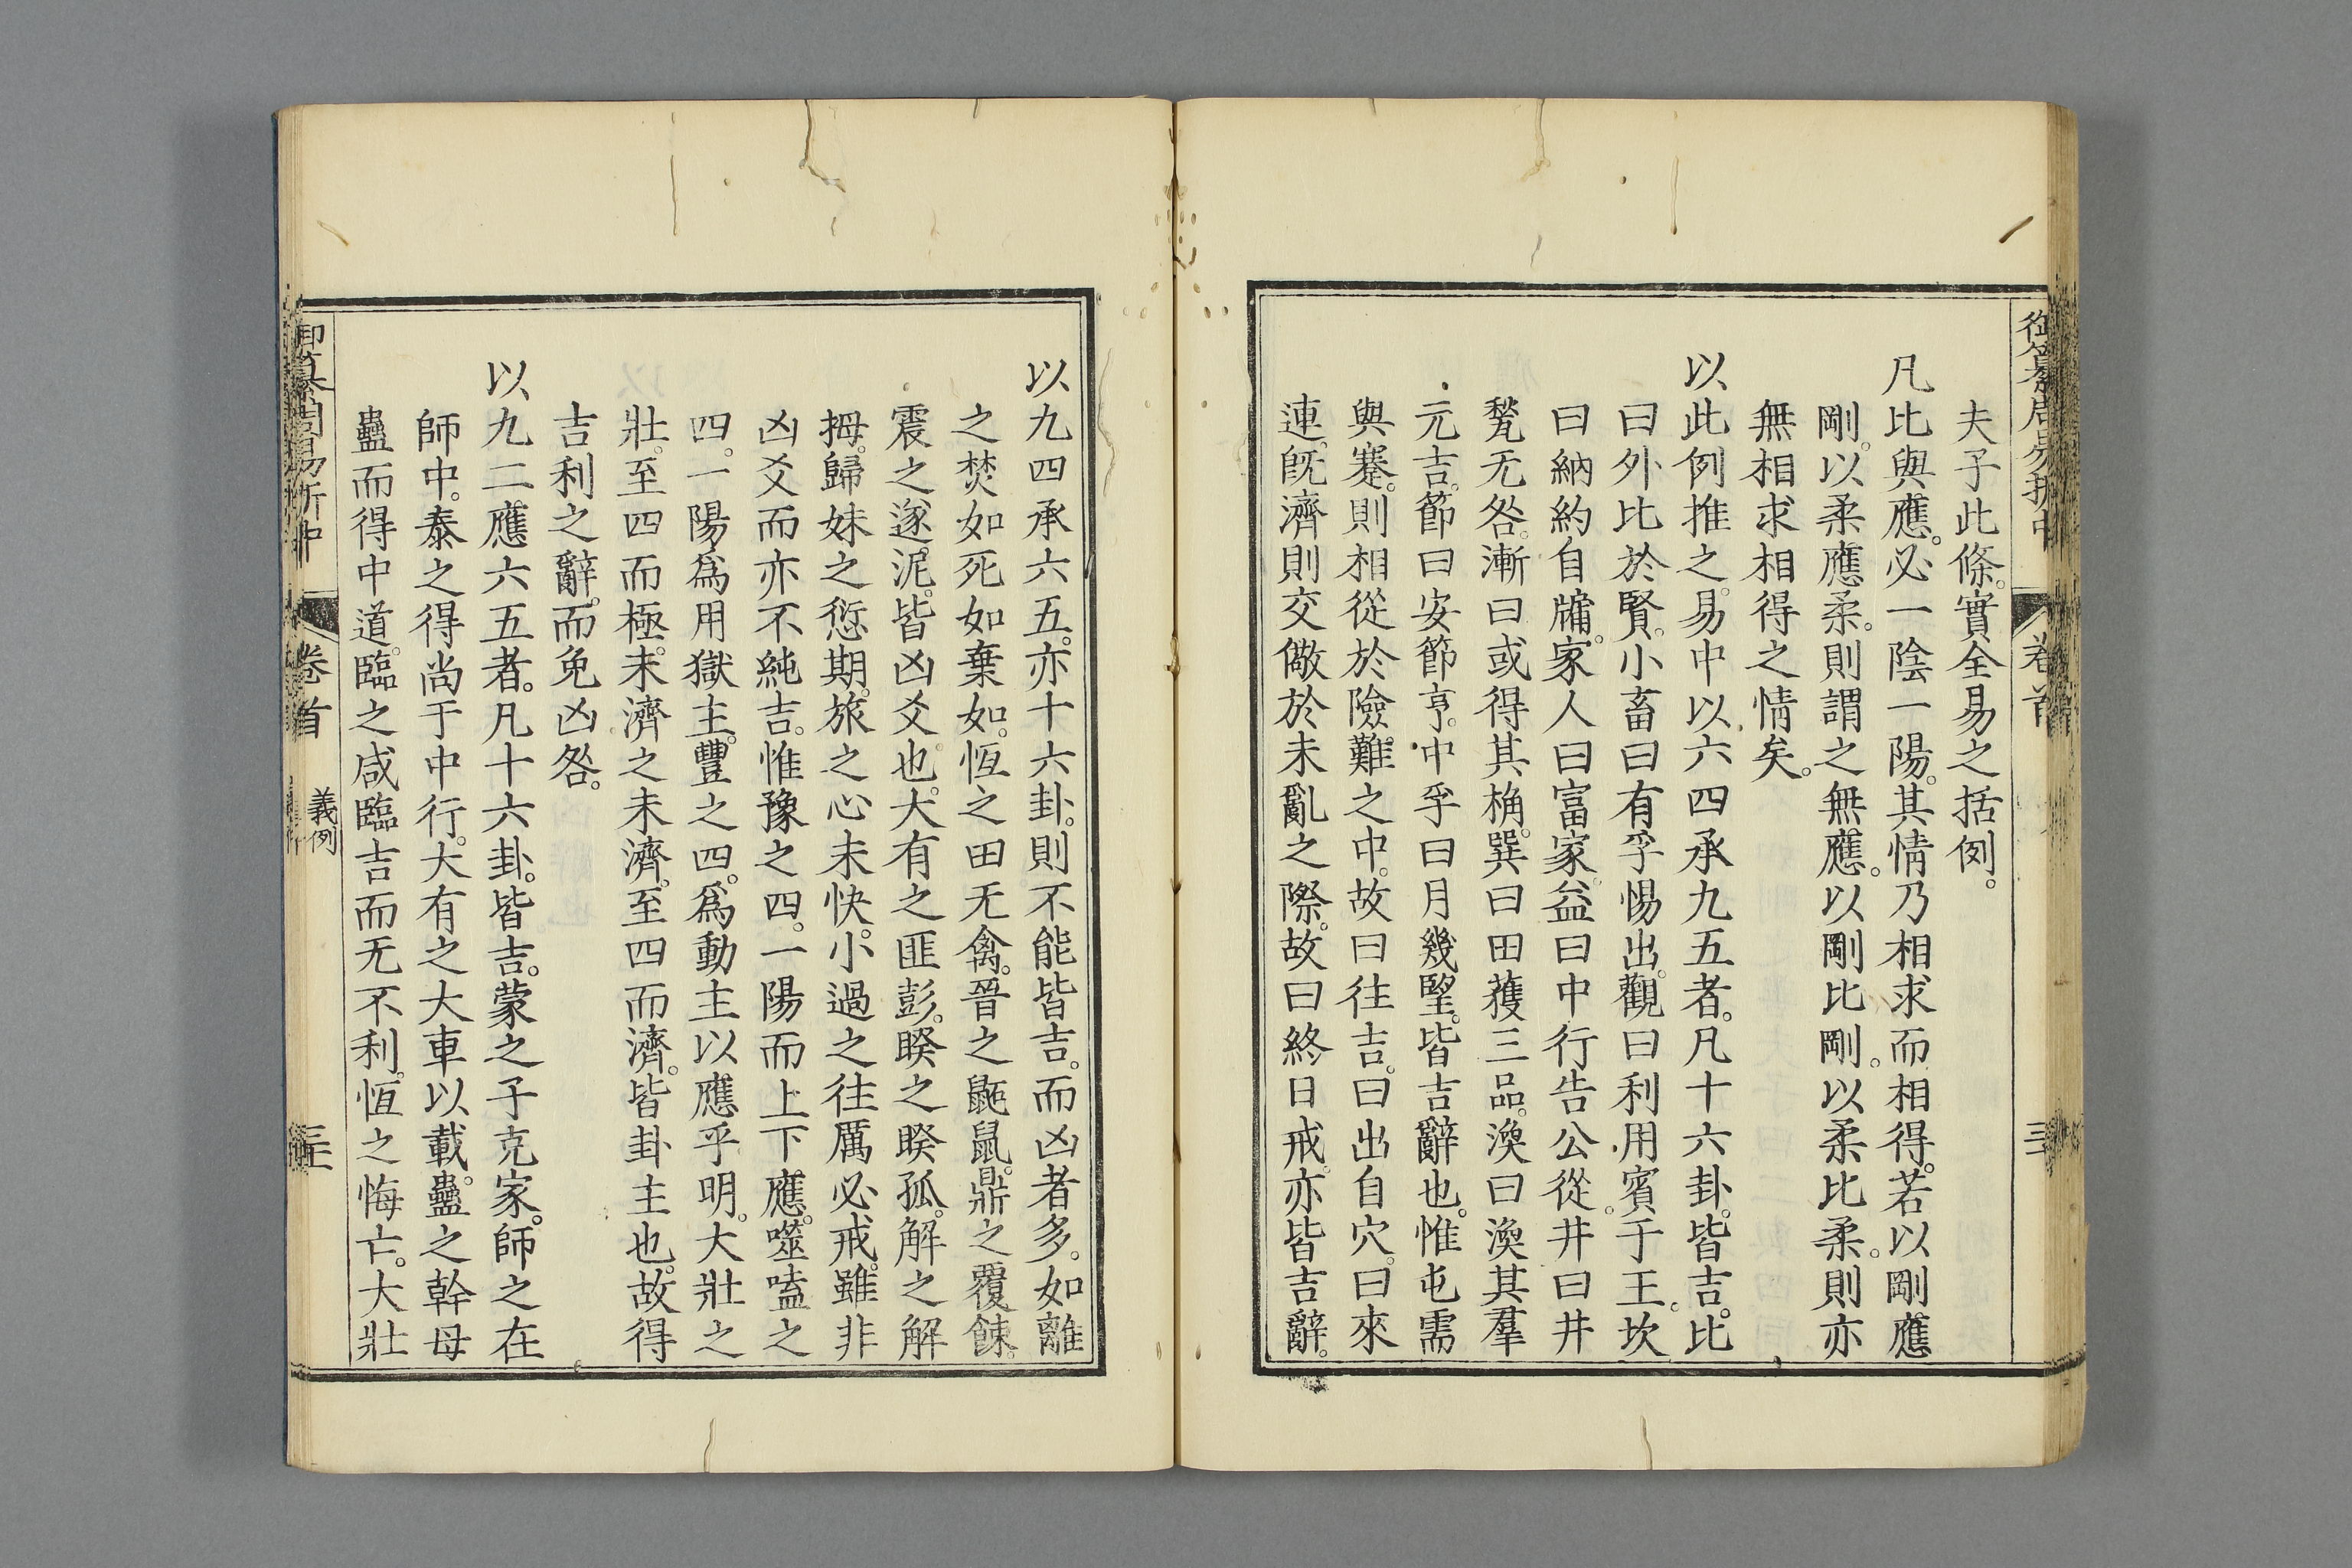 御纂周易折中
卷首
夫子此條。實全易之括例。
凡比與應。必一陰一陽。其情乃相求而相得。若以剛應
剛。以柔應柔。則謂之無應。以剛比剛。以柔比柔。則亦
無相求相得之情矣。
以此例推之。易中以六四承九五者。凡十六卦。皆吉。比
曰外比於賢。小畜曰有孚惕出。觀曰利用賓于王。坎
曰納約自牖。家人曰富家。益曰中行告公從。井曰井
甃无咎。漸曰或得其桷。巽曰田獲三品。渙曰渙其羣
元吉。節曰安節亨。中孚曰月幾望。皆吉辭也。惟屯需
與蹇。則相從於險難之中。故曰往吉。曰出自穴。曰來
連。旣濟則交儆於未亂之際。故曰終日戒。亦皆吉辭。
以九四承六五。亦十六卦。則不能皆吉。而凶者多。如離
之焚如死如棄如。恆之田无禽。晉之鼫鼠。鼎之覆餗。
震之遂泥。皆凶爻也。大有之匪彭。睽之睽孤。解之解
拇。歸妹之愆期。旅之心未快。小過之往厲必戒。雖非
凶爻而亦不純吉。惟豫之四。一陽而上下應。噬嗑之
四。一陽爲用獄主。豐之四。爲動主以應乎明。大壯之
壯。至四而極。未濟之未濟。至四而濟。皆卦主也。故得
吉利之辭。而免凶咎。
以九二應六五者。凡十六卦。皆吉。蒙之子克家。師之在
師中。泰之得尚于中行。大有之大車以載。蠱之幹母
蠱而得中道。臨之咸臨吉而无不利。恆之悔亡。大壯
御纂周易折中
卷首
義例